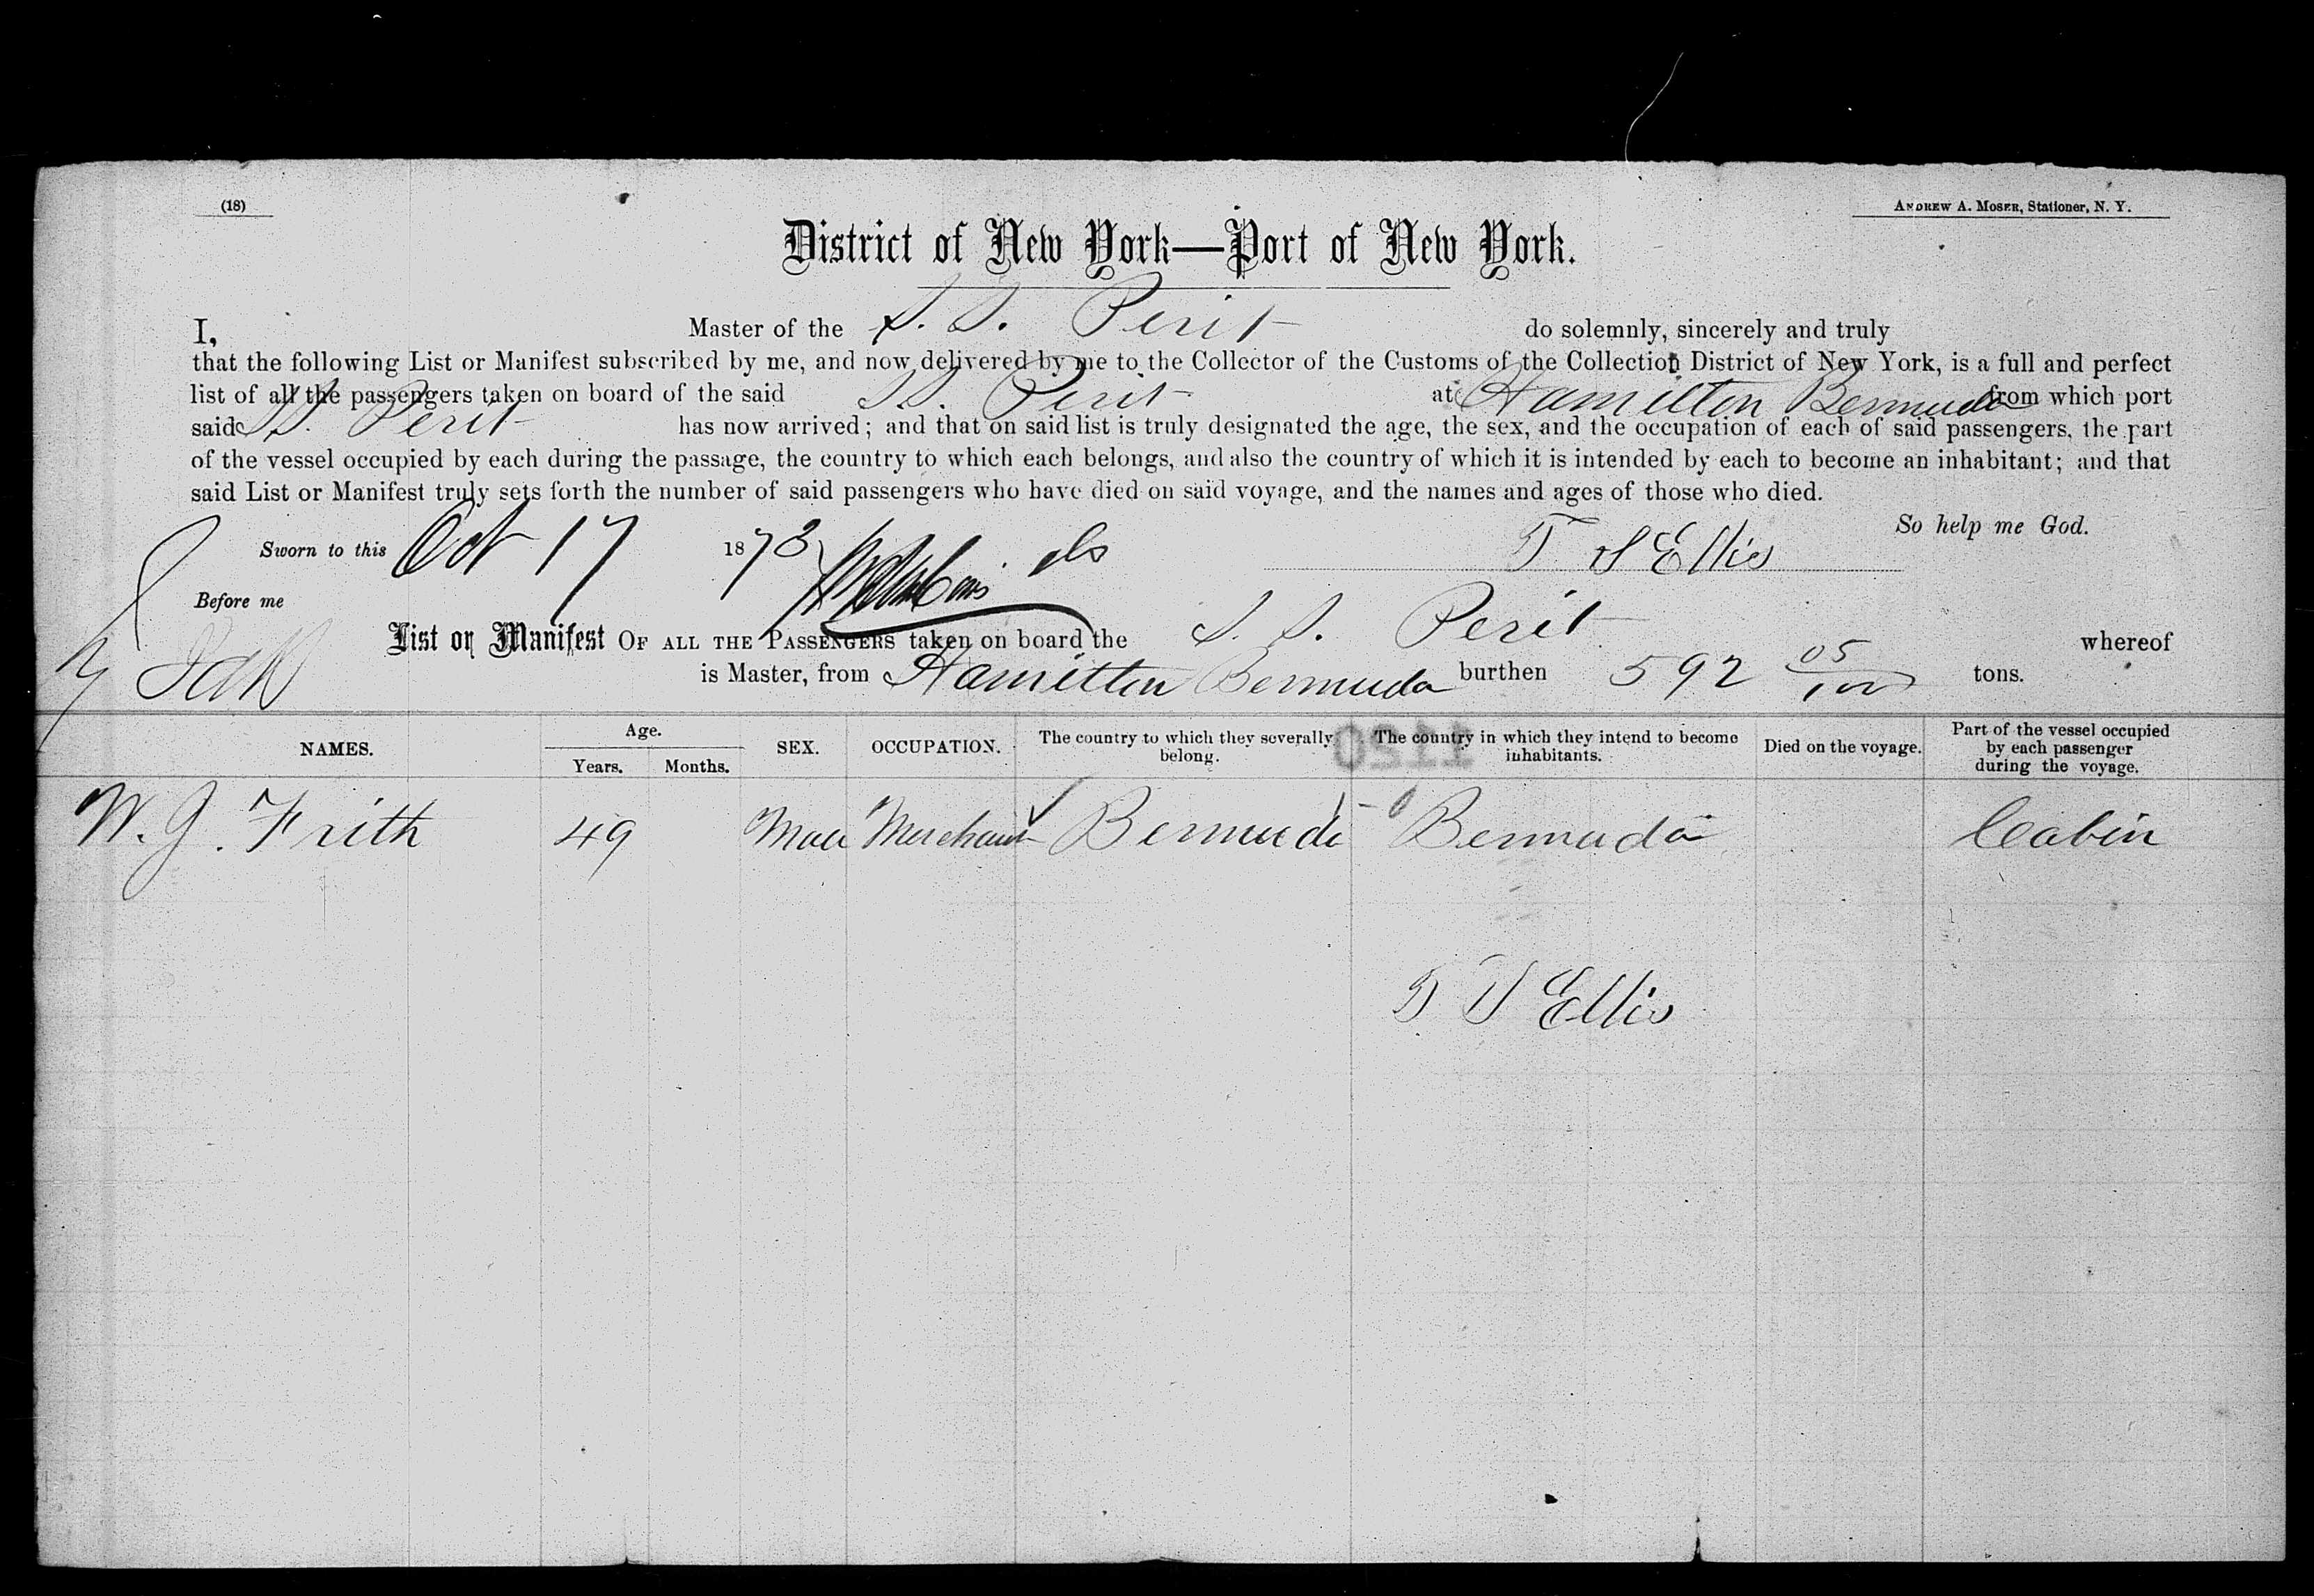 (18)
ANDREW A. MOSER, Stationer, N. Y.
District of New York—Port of New York.
I, Master of the S. S. Perit do solemnly, sincerely and truly
that the following List or Manifest subscribed by me, and now delivered by me to the Collector of the Customs of the Collection District of New York, is a full and perfect
list of all the passengers taken on board of the said SS. Perit at Hamilton Bermuda from which port
said SS. Perit has now arrived; and that on said list is truly designated the age, the sex, and the occupation of each of said passengers, the part
of the vessel occupied by each during the passage, the country to which each belongs, and also the country of which it is intended by each to become an inhabitant; and that
said List or Manifest truly sets forth the number of said passengers who have died on said voyage, and the names and ages of those who died.
So help me God.
Sworn to this Oct 17 1873 T S Ellis
Before me
List or Manifest OF ALL THE PASSENGERS taken on board the S. S. Perit whereof
is Master, from Hamilton Bermuda burthen 592 05/100 tons.
NAMES. Age. Years. Months. SEX. OCCUPATION. The country to which they severally belong. The country in which they intend to become inhabitants. Died on the voyage. Part of the vessel occupied by each passenger during the voyage.
1150
W. J. Frith 49 Male Merchant Bermuda Bermuda Cabin
T S Ellis